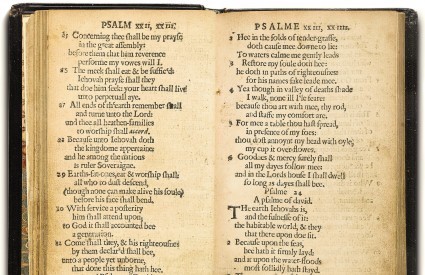 PSALM xxii, xxiii.
25 Concerning thee shall be my prayse
in the great assembly:
before them that him reverence
performe my vowes will I.
26 The meek shall eat & be suffic'd
Iehovah prayse shall they
that doe him seek: your heart shall live
unto perpetuall aye.
27 All ends of th'earth remember shall
and turne unto the Lord:
and thee all heathen-families
to worship shall accord.
28 Because unto Iehovah doth
the kingdome appertaine:
and he among the nations
is ruler Soveraigne.
29 Earths-fat-ones, eat & worship shall:
all who to dust descend,
(though none can make alive his soule)
before his face shall bend.
30 With service a posterity
him shall attend upon;
to God it shall accounted bee
a generation.
31 Come shall they, & his righteousnes
by them declar'd shall bee,
unto a people yet unborne,
that done this thing hath hee.
PSALME xxiii, xxiiii.
2 Hee in the folds of tender-grasse,
doth cause mee downe to lie:
To waters calme me gently leads
3 Restore my soule doth hee:
he doth in paths of righteousnes
for his names sake leade mee.
4 Yea though in valley of deaths shade
I walk, none ill I'le feare:
because thou art with mee, thy rod,
and staffe my comfort are.
5 For mee a table thou hast spread,
in presence of my foes:
thou dost annoynt my head with oyle;
my cup it over-flowes.
6 Goodnes & mercy surely shall
all my dayes follow mee:
and in the Lords house I shall dwell
so long as dayes shall bee.
Psalme 24
A psalme of david.
THe earth Iehovahs is,
and the fulnesse of it:
the habitable world, & they
that there upon doe sit.
2 Because upon the seas,
hee hath it firmly layd:
and it upon the water-floods
most sollidly hath stayd.